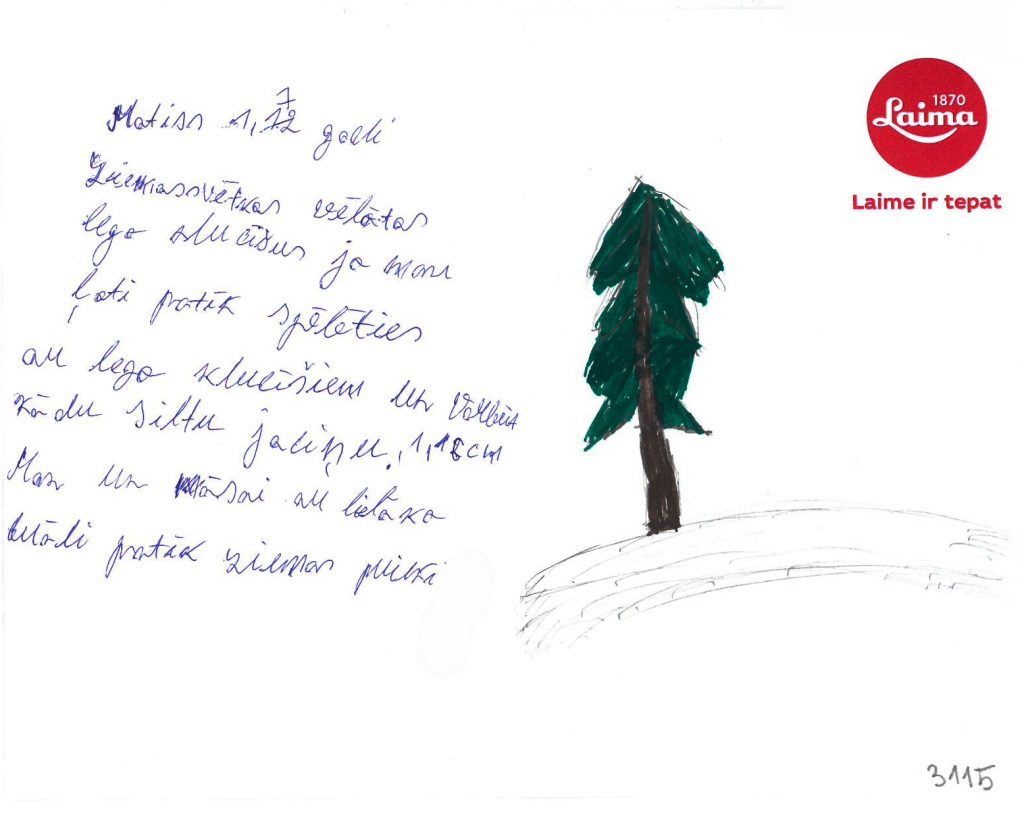 1870
Laima
Laime ir tepat
Matiss 1,12 gadi
7
Ziemassvētkos vēlētos
lego klucīšus jo man
ļoti patīk spēlēties
ar lego klucīšiem un Varbūt
kādu siltu jaciņu. 1,18cm
Man un māsai ar lielāko
brāli patīk ziemas prieki
3115